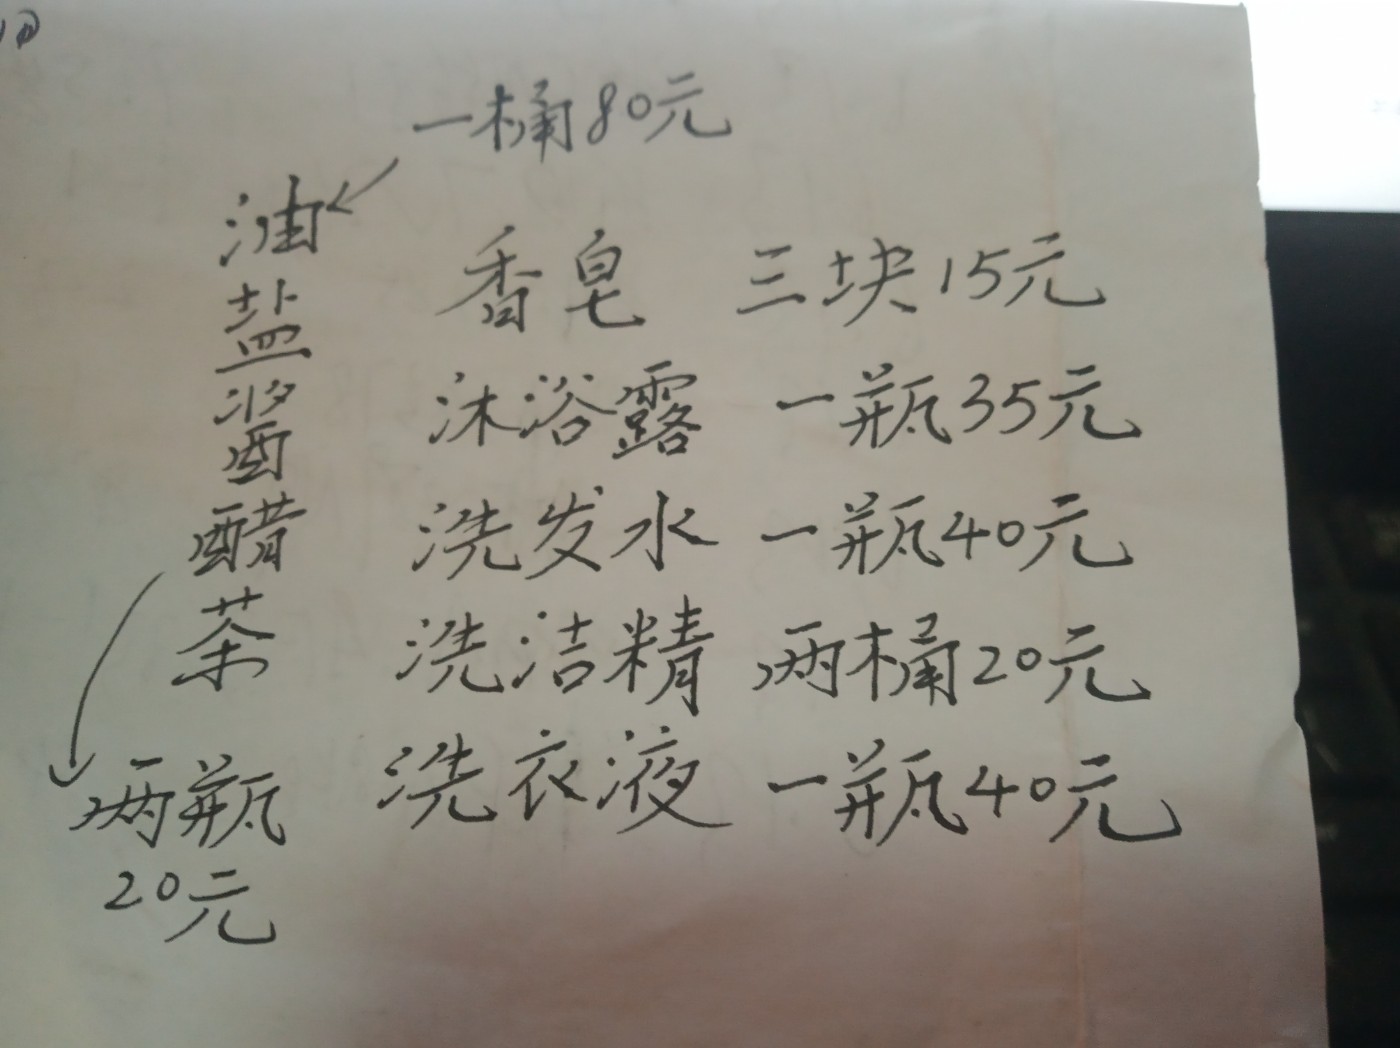 一桶80元
油
盐
酱
醋
茶
两瓶
20元
香皂 三块15元
沐浴露 一瓶35元
洗发水 一瓶40元
洗洁精 两桶20元
洗衣液 一瓶40元